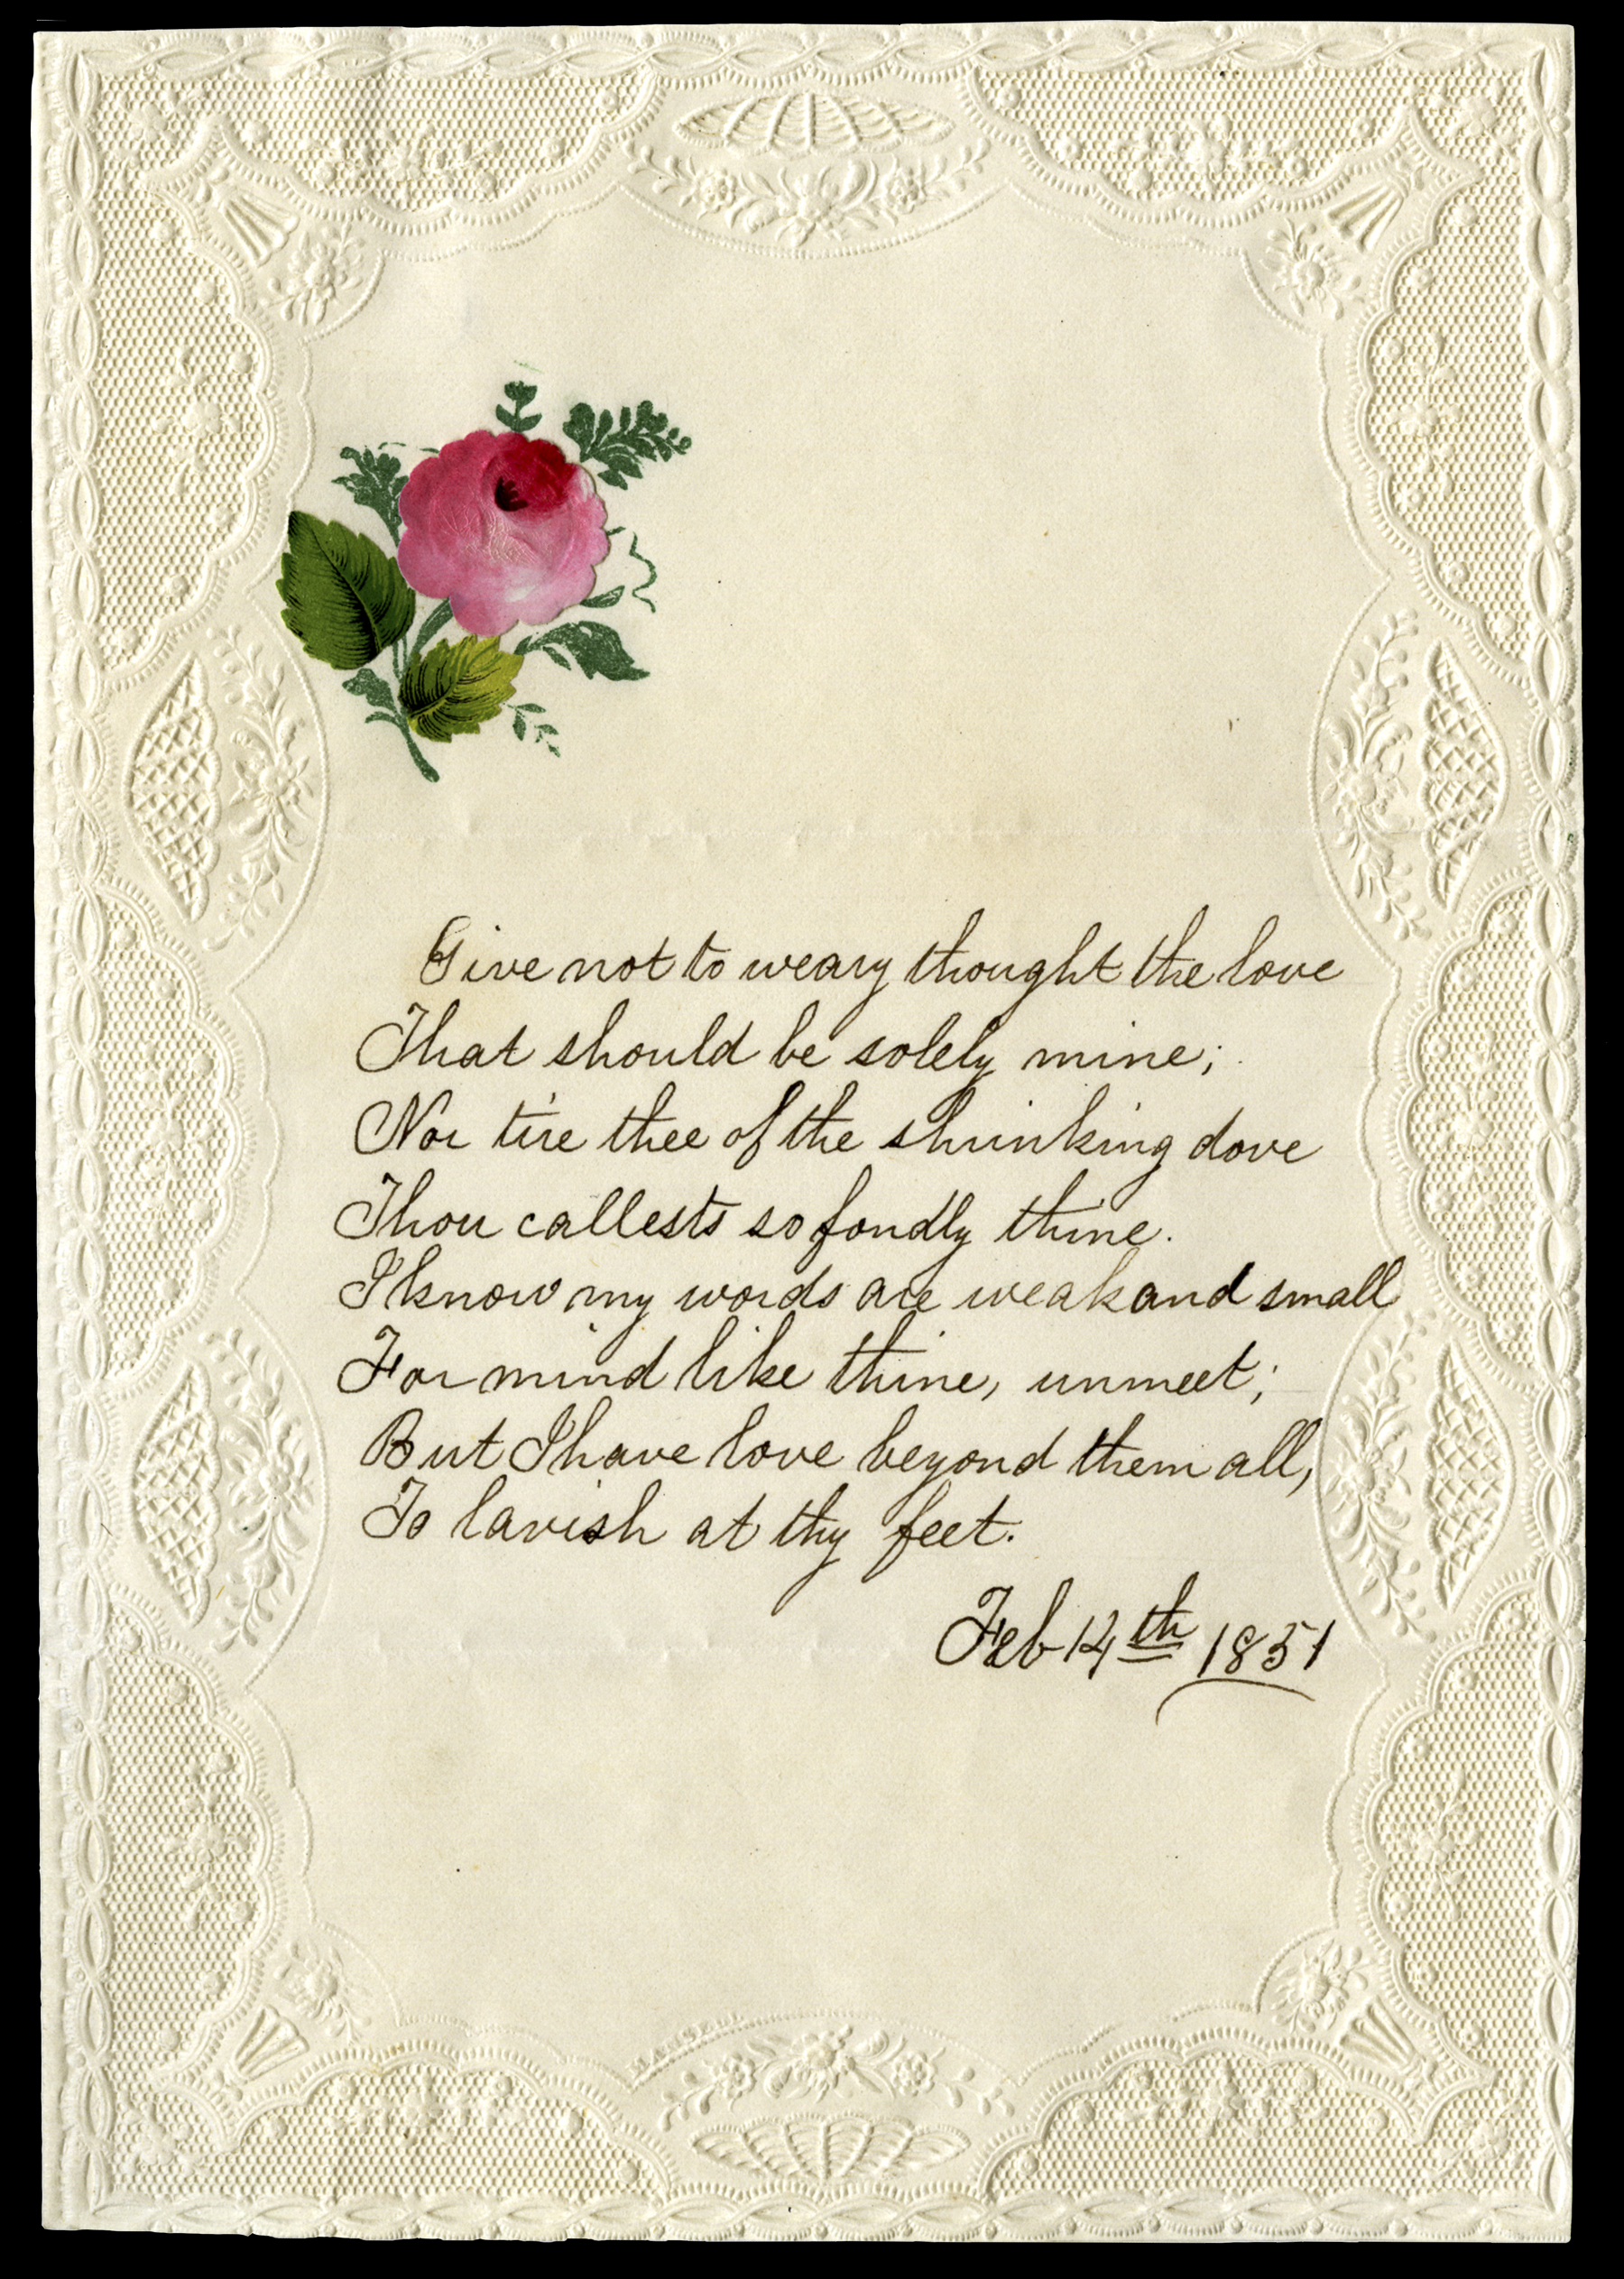 Give not to weary thought the love
That should be solely mine;
Nor tire thee of the shrinking dove
Thou callests so fondly thine.
I know my words are weak and small
For mind like thine, unmeet;
But I have love beyond them all,
To lavish at thy feet.
Feb 14th 1851